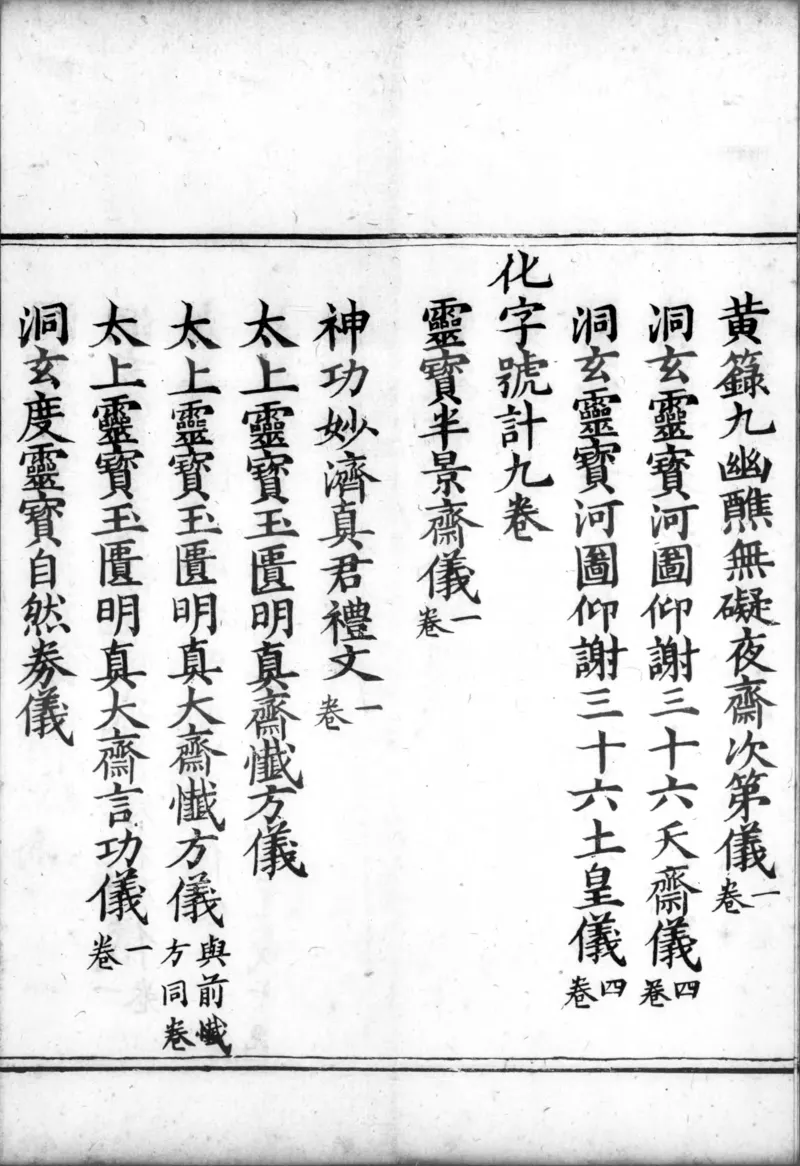 黄籙九幽醮無礙夜齋次第儀一卷
洞玄靈寶河圖仰謝三十六天齋儀四卷
洞玄靈寶河圖仰謝三十六土皇儀四卷
化字號計九卷
靈寶半景齋儀一卷
神功妙濟真君禮文一卷
太上靈寶玉匱明真齋懴方儀
太上靈寶玉匱明真大齋懴方儀與前懴方同卷
太上靈寶玉匱明真大齋言功儀一卷
洞玄度靈寶自然券儀